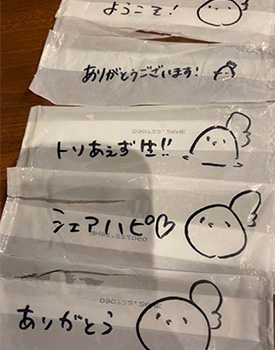 ようこそ!
ありがとうございます!
トリあえず生!!
シェアハピ♡
ありがとう